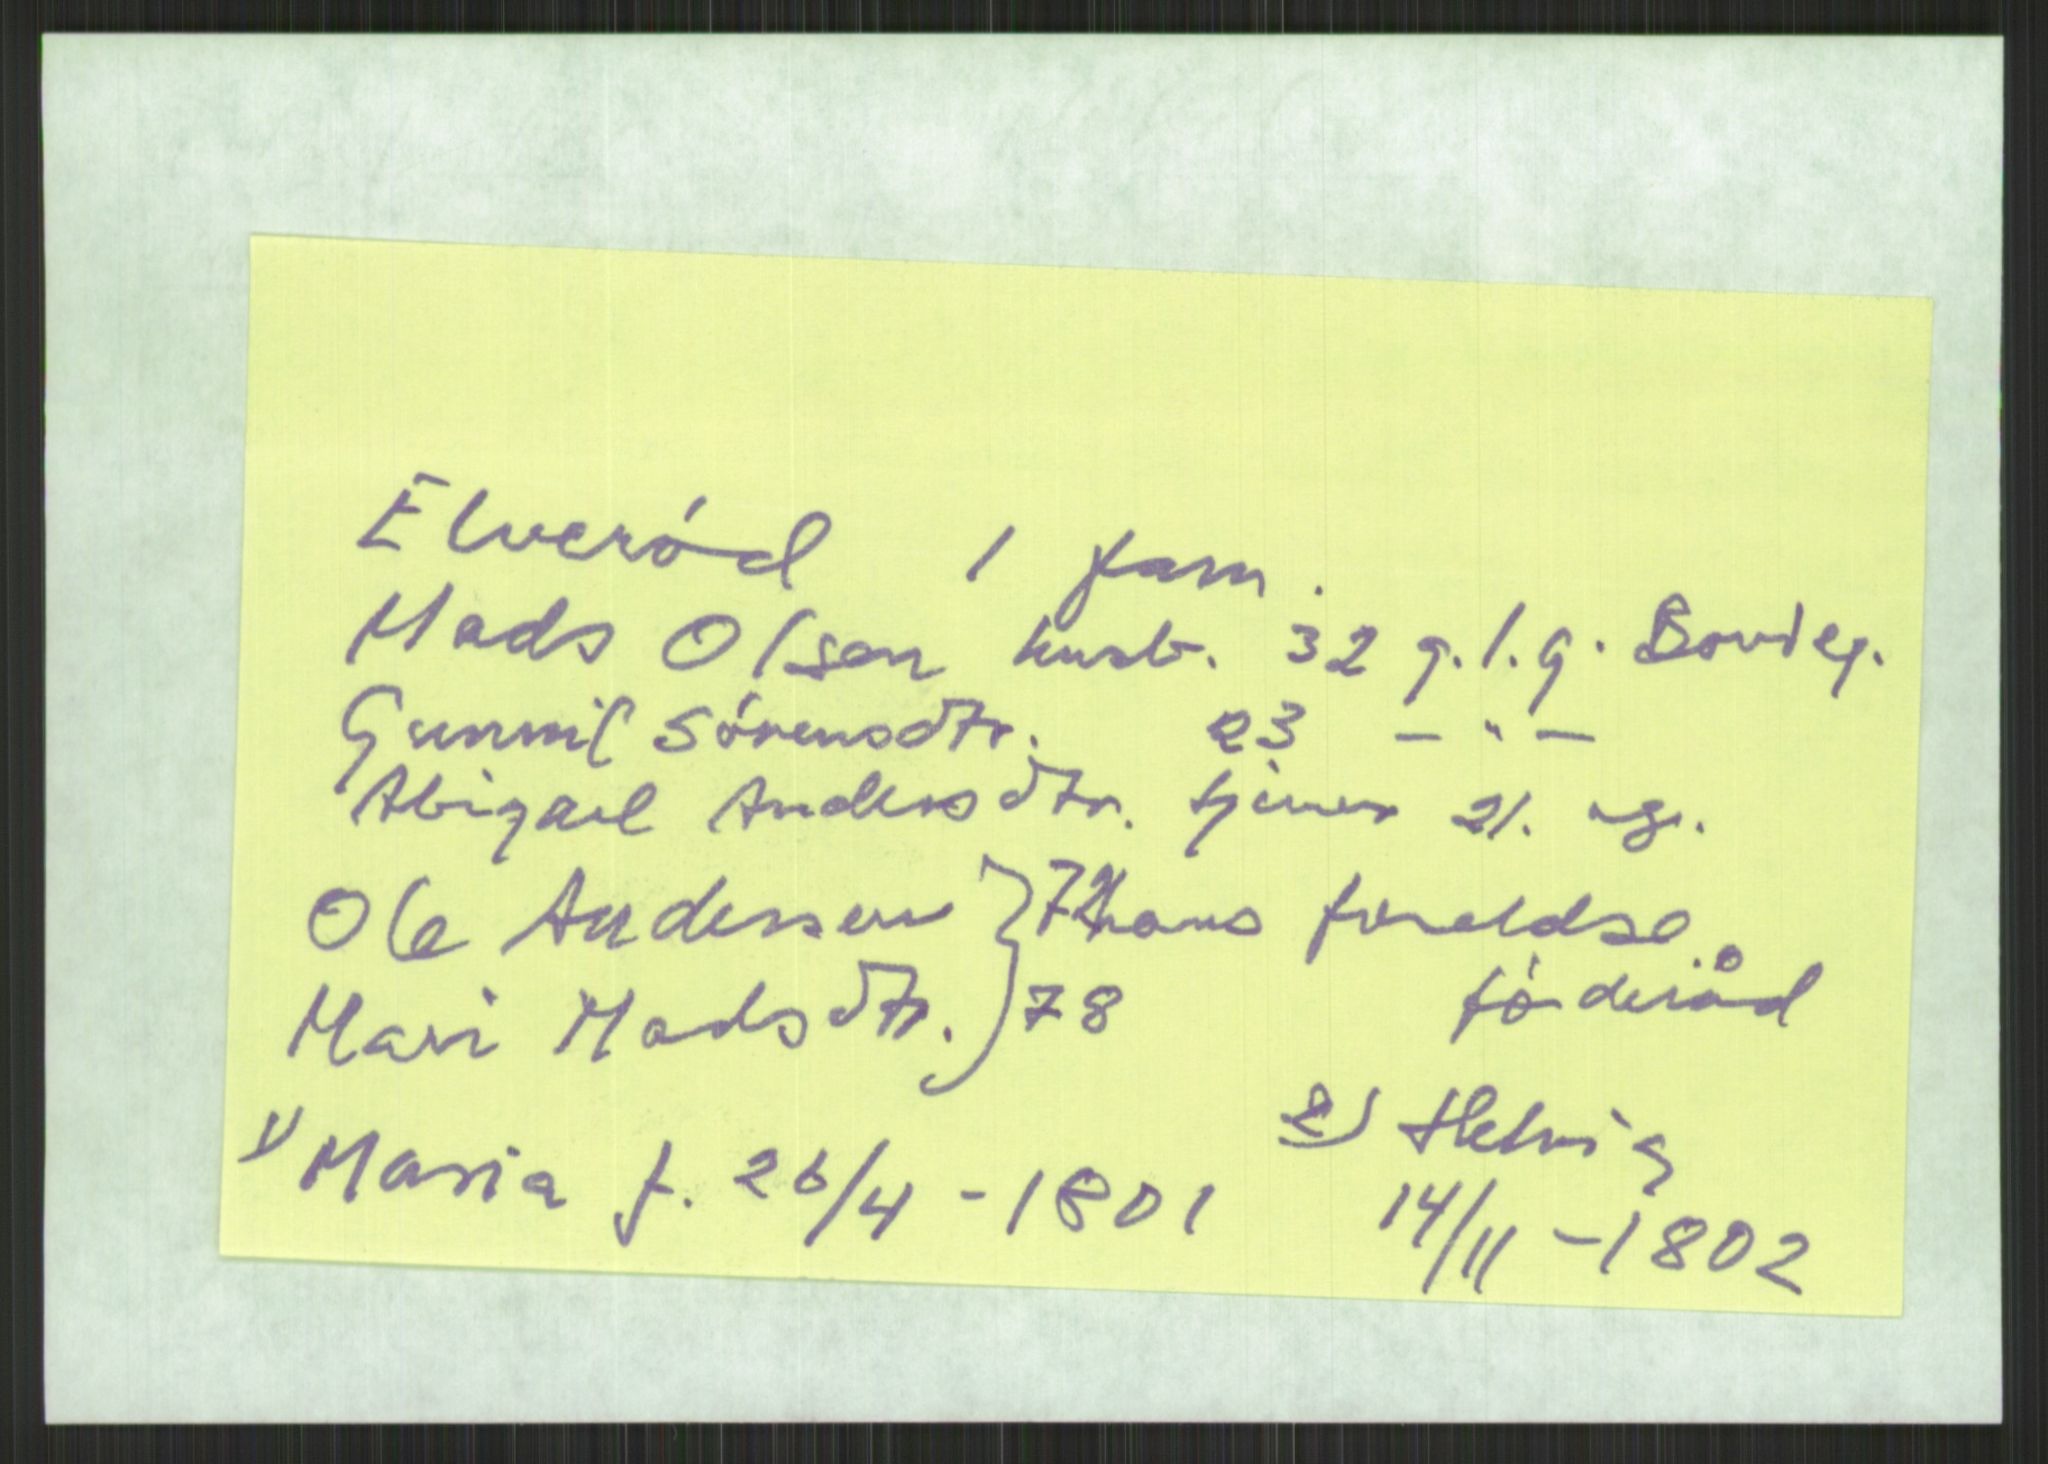 Elveród 1 fam.
Mads Olsen husb. 32 g. 1. g.
Gunnil Sórensdtr. 23 — " —
Abigael Andersdtr. tjener 21. ug.
Ole Anderssen } 72 hans foreldre.
Mari Madsdtr. } 78 föderåd
1) Maria f. 26/4 - 1801
2) Helvig
14/11 - 1802